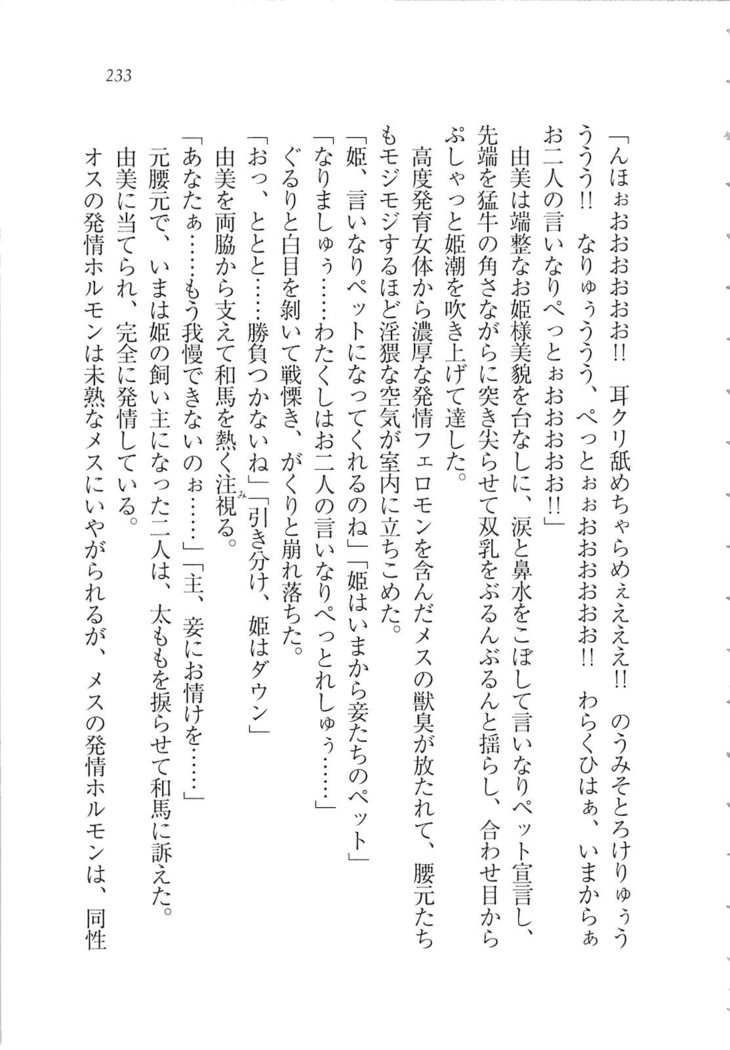 233
「んほぉおおおおおお!!　耳クリ舐めちゃらめぇえええ!!　のうみそとろけりゅぅう
ううう!!　なりゅぅううう、ぺっとぉぉおおおおおお!!　わらくひはぁ、いまからぁ
お二人の言いなりぺっとぉおおおおお!!」
由美は端整なお姫様美貌を台なしに、涙と鼻水をこぼして言いなりペット宣言し、
先端を猛牛の角さながらに突き尖らせて双乳をぶるんぶるんと揺らし、合わせ目から
ぷしゃっと姫潮を吹き上げて達した。
高度発育女体から濃厚な発情フェロモンを含んだメスの獣臭が放たれて、腰元たち
もモジモジするほど淫猥な空気が室内に立ちこめた。
「姫、言いなりペットになってくれるのね」「姫はいまから妾たちのペット」
「なりましゅぅ……わたくしはお二人の言いなりぺっとれしゅぅ……」
ぐるりと白目を剥いて戦慄き、がくりと崩れ落ちた。
「おっ、ととと……勝負つかないね」「引き分け、姫はダウン」
由美を両脇から支えて和馬を熱く注視る。
み
「あなたぁ……もう我慢できないのぉ……」「主、妾にお情けを……」
元腰元で、いまは姫の飼い主になった二人は、太ももを捩らせて和馬に訴えた。
由美に当てられ、完全に発情している。
オスの発情ホルモンは未熟なメスにいやがられるが、メスの発情ホルモンは、同性